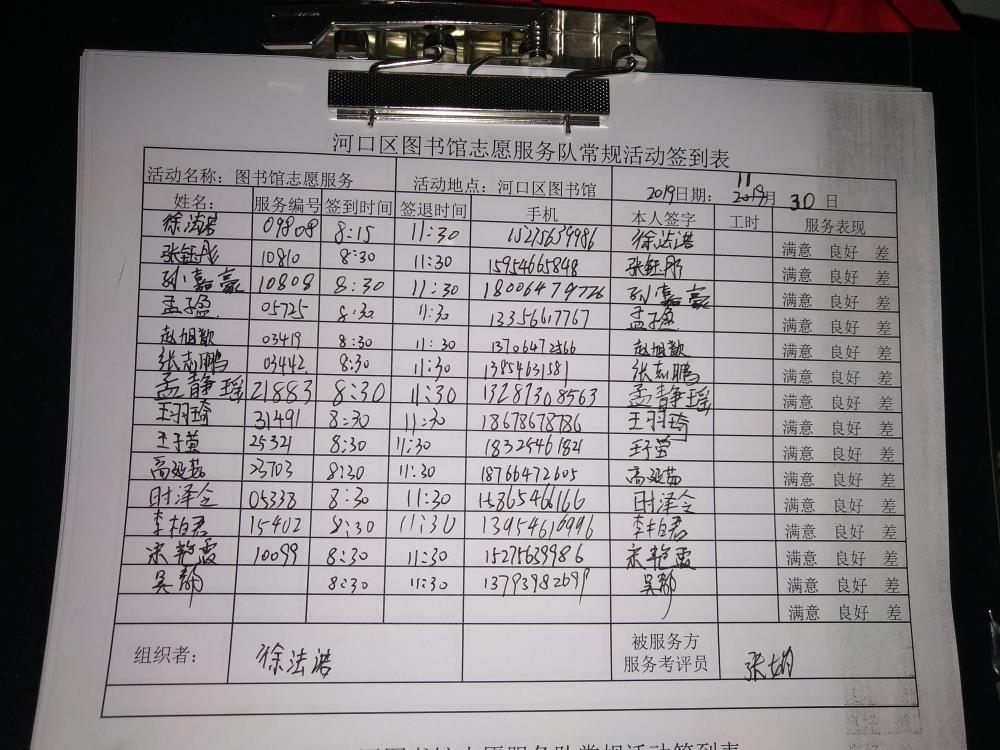 河口区图书馆志愿服务队常规活动签到表
活动名称：图书馆志愿服务 活动地点：河口区图书馆 2019日期： 11月 30 日
姓名： 服务编号 签到时间 签退时间 手机 本人签字 工时 服务表现
徐法浩 09808 8:15 11:30 15275639986 徐法浩 满意 良好 差
张钰彤 10810 8:30 11:30 15954665848 张钰彤 满意 良好 差
孙嘉豪 10808 8:30 11:30 18006479726 孙嘉豪 满意 良好 差
孟子盈 05725 8:30 11:30 13356617767 孟子盈 满意 良好 差
赵旭歌 03419 8:30 11:30 赵旭歌 满意 良好 差
张志鹏 03442 8:30 11:30 13854631581 张志鹏 满意 良好 差
孟静瑶 21883 8:30 11:30 13287308563 孟静瑶 满意 良好 差
王羽琦 31491 8:30 11:30 18678678786 王羽琦 满意 良好 差
王子萱 25321 8:30 11:30 18325461821 王子萱 满意 良好 差
23703 8:30 11:30 18766472605 满意 良好 差
时泽仝 05338 8:30 11:30 15865466166 时泽仝 满意 良好 差
李柏君 15402 8:30 11:30 13954616996 李柏君 满意 良好 差
宋艳霞 10099 8:30 11:30 15275639986 宋艳霞 满意 良好 差
吴 8:30 11:30 13793982699 吴 满意 良好 差
满意 良好 差
组织者： 徐法浩 被服务方
服务考评员 张娟
区图书馆志愿服务队常规活动签到表